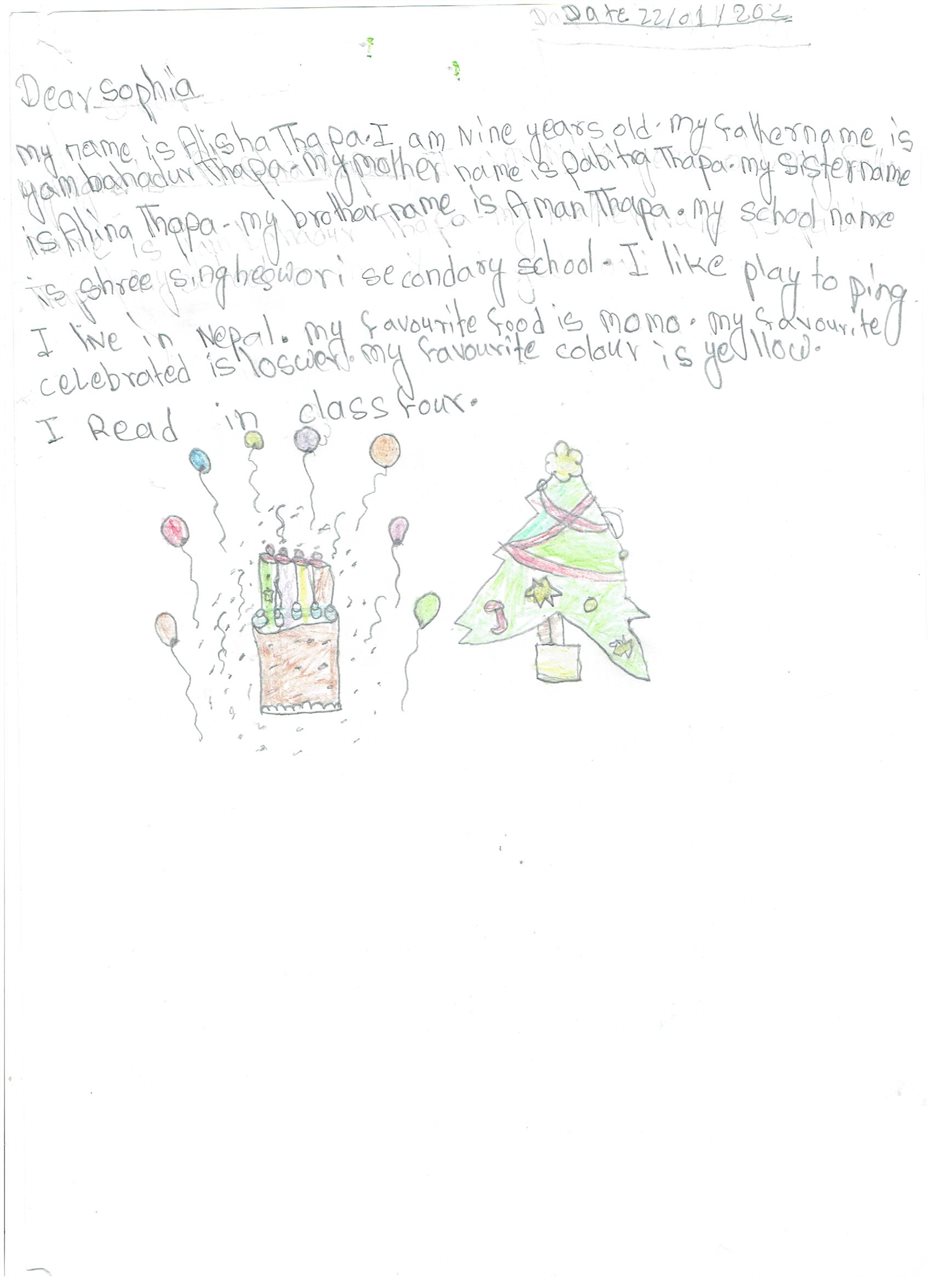 Date 22/01/202
Dear Sophia
my name is Alisha Thapa. I am Nine years old. my father name is
yam bahadur Thapa. my mother name is Pabitra Thapa. my sister name
is Alina Thapa. my brother name is Aman Thapa. my school name
is shree singheswori secondary school. I like play to ping
I live in Nepal. my favourite food is momo. my favourite
celebrated is loswer. my favourite colour is yellow.
I Read in class four.